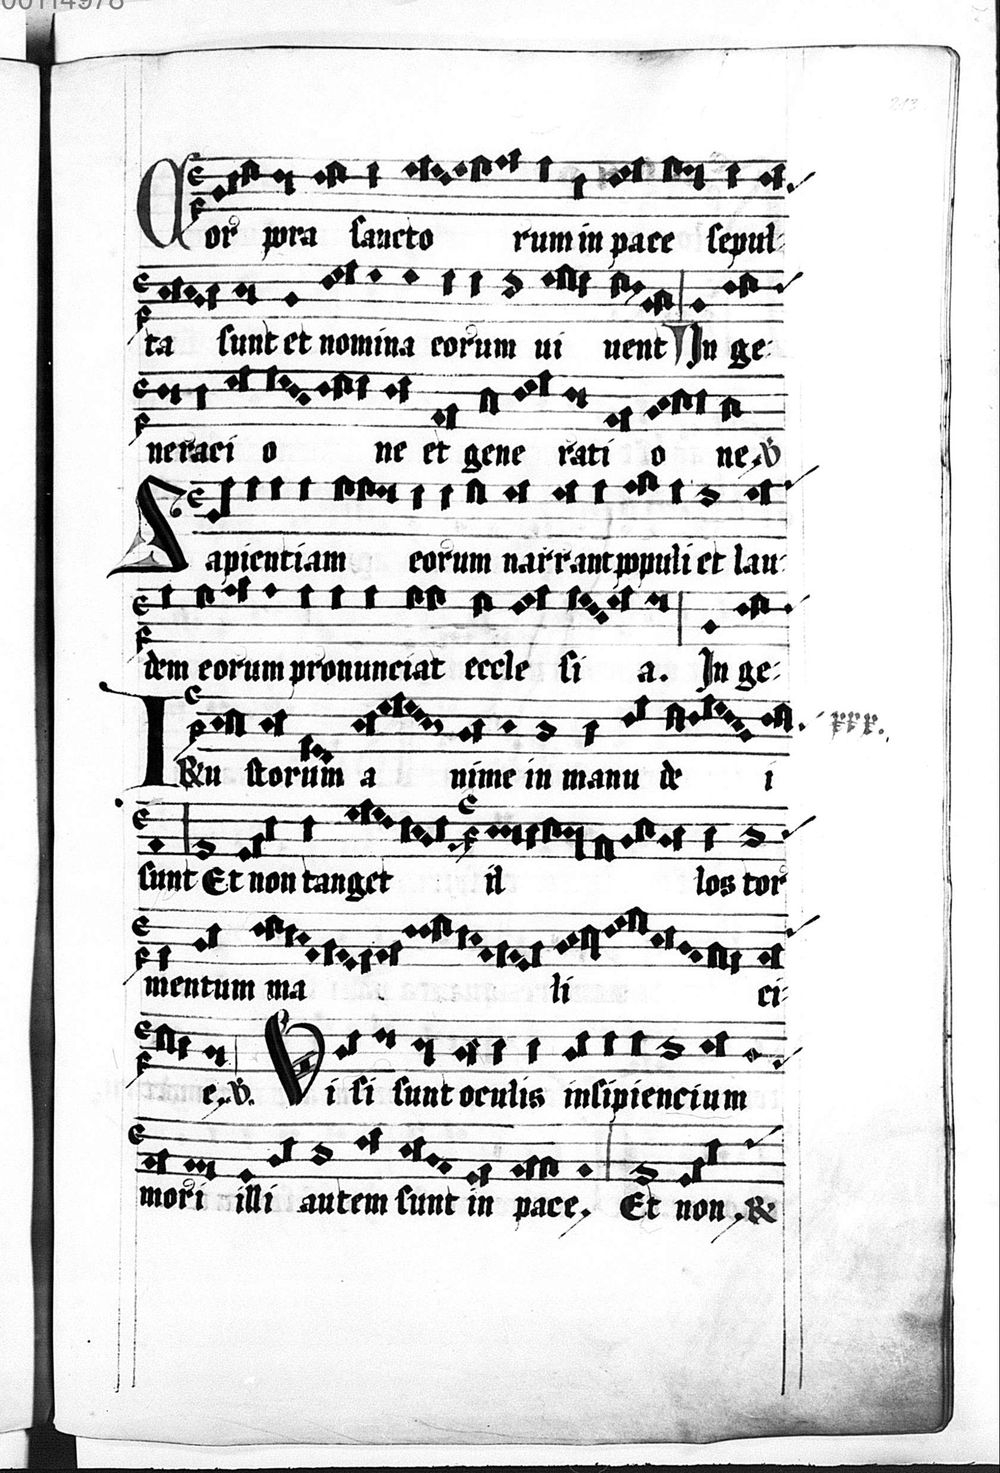 00114978
213
Cor pora sancto rum in pace sepul-
ta sunt et nomina eorum ui uent In ge-
neraci o ne et gene rati o ne. V
Sapientiam eorum narrant populi et lau-
dem eorum pronunciat eccle si a. In ge-
Iustorum a nime in manu de i
sunt Et non tanget il los tor
mentum ma li ci-
e. V. Visi sunt oculis insipiencium
mori illi autem sunt in pace. Et non. &